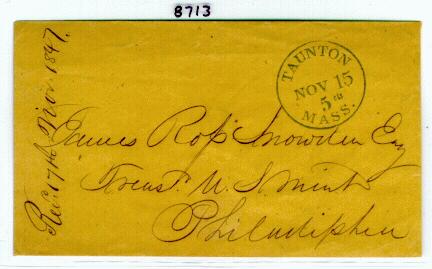 8713
TAUNTON
NOV 15
5th
MASS.
Recd 17th Nov 1847.
James Ross Snowden Esq
Treasr. U. S. Mint
Philadelphia